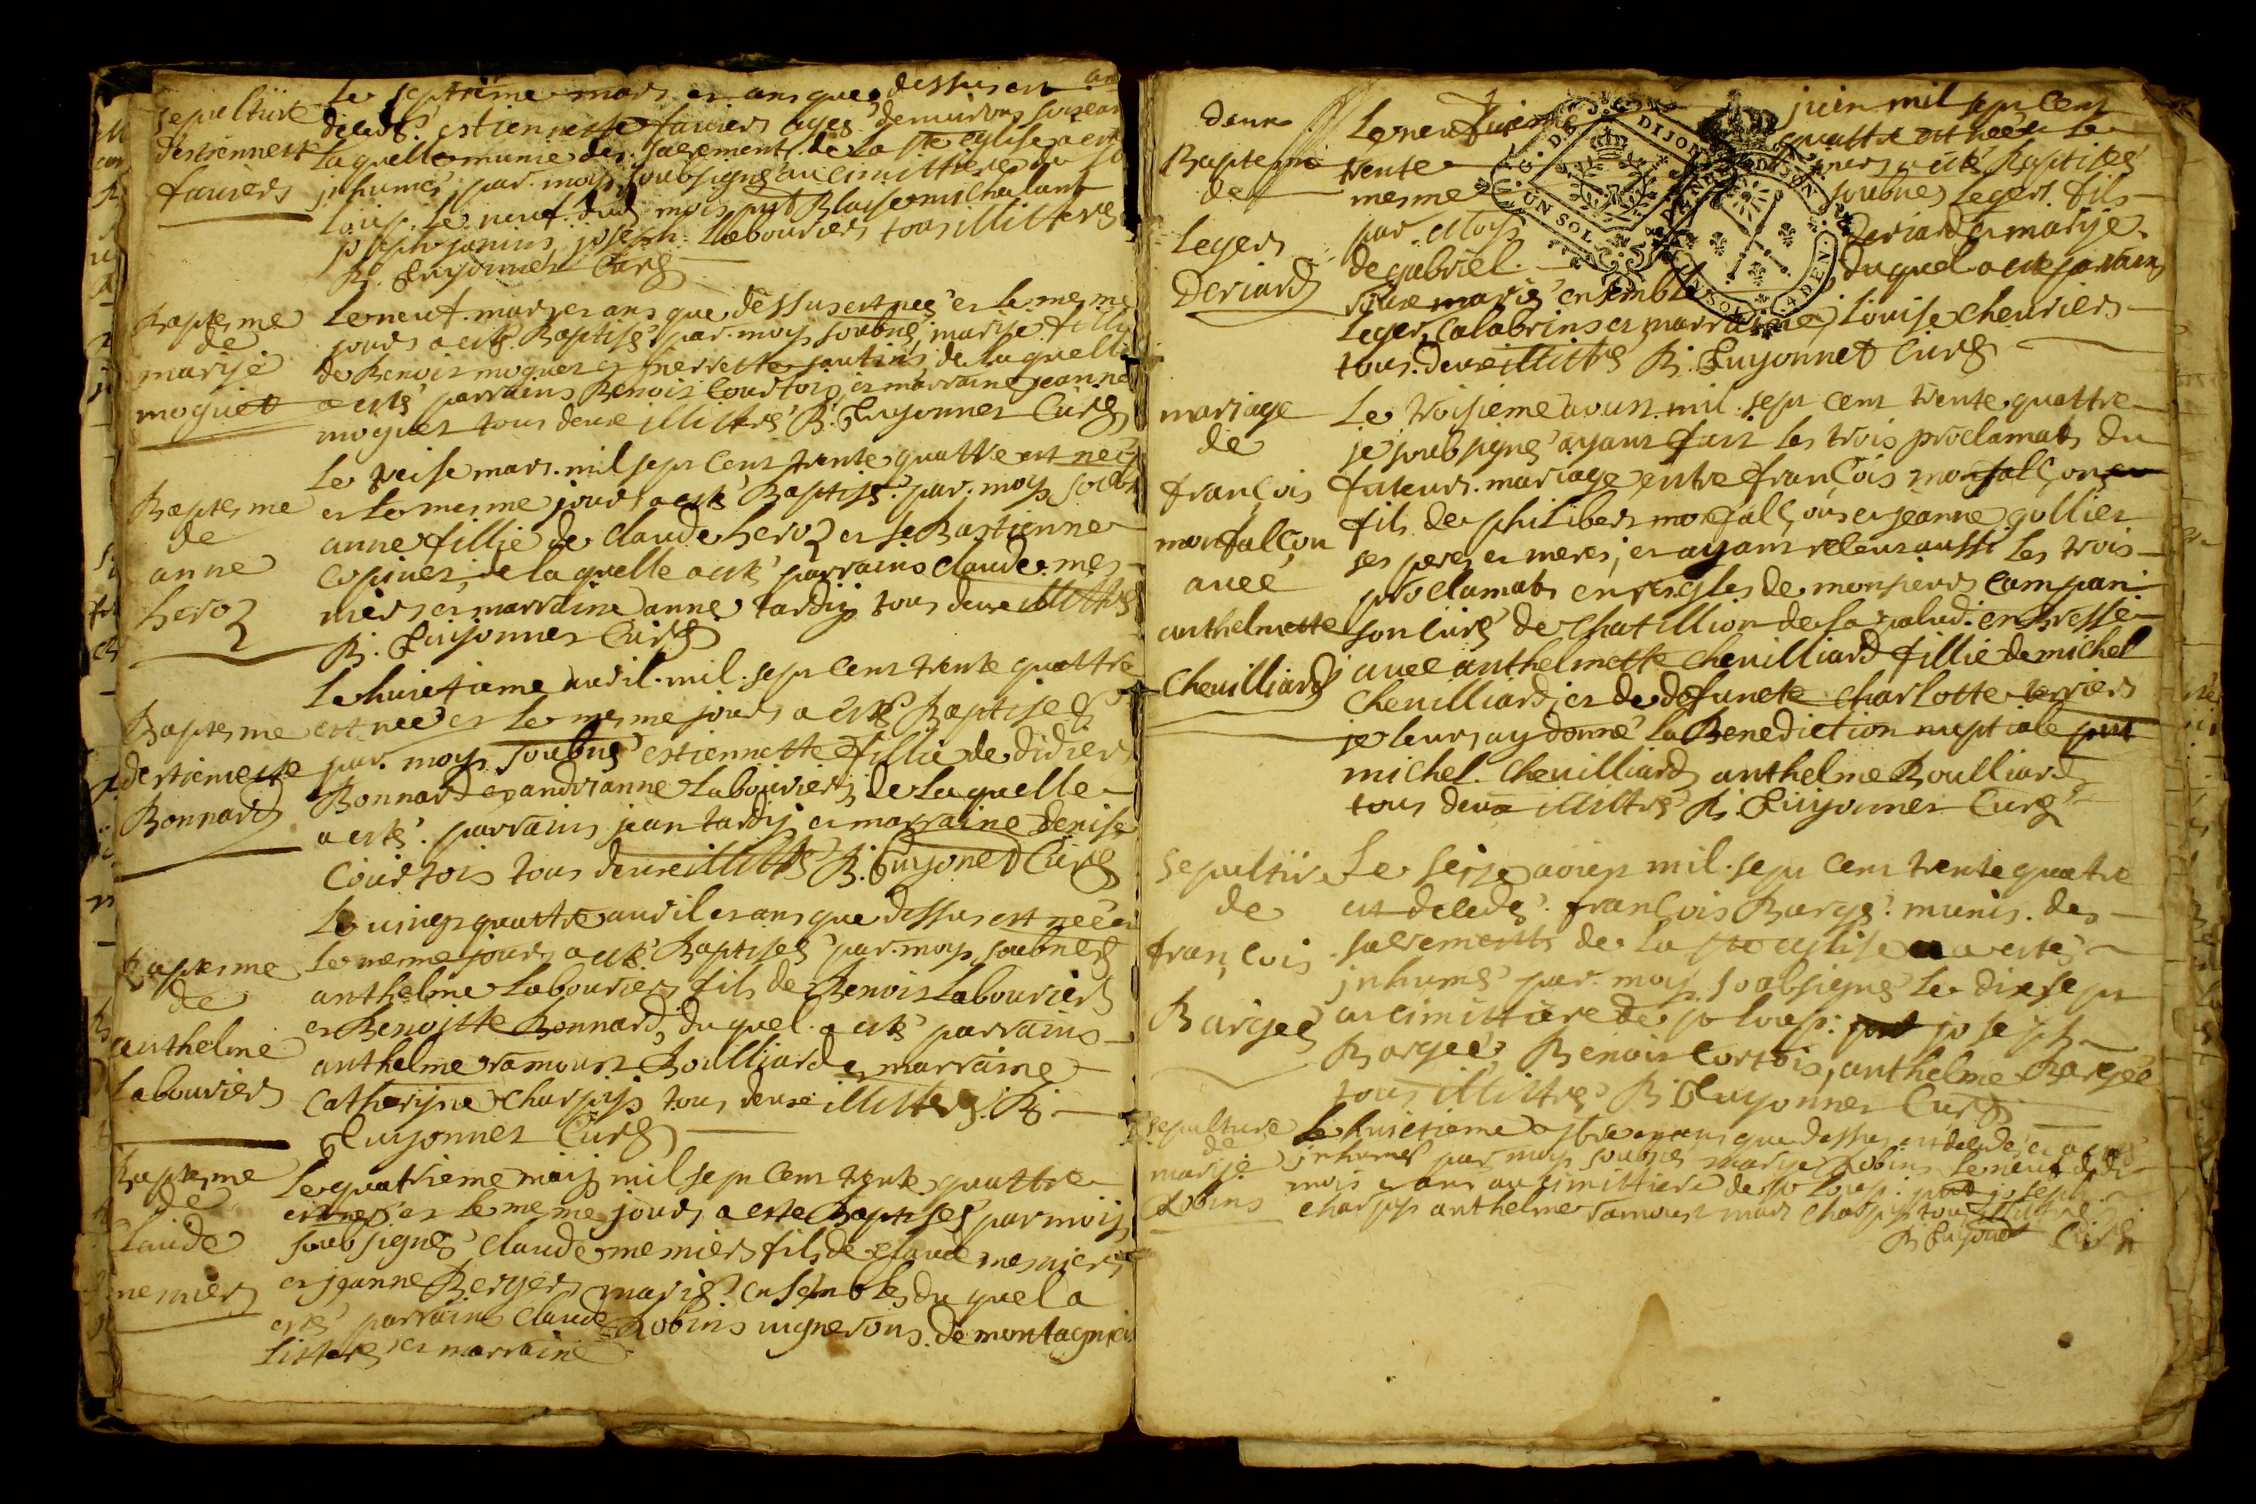 sepulture
destiennette
fauiers
Le septieme mars et ans que dessus est
decede estiennette fauiers agee denuirons soixan
laquelle munie des sacrement de La ste eglise a esté
jnhumé par moy soubsigné au cimittiere de st
Loup Le neuf dud mois pnt Blaise michalant
joseph janins joseph Labouriers tous illitteré
B. Guyonnet Curé
Baptesme
de
marije
moguet
Le neuf mars et ans que dessus est neé et le mesme
jours a esté Baptisé par moy soubné marije fillie
de Benois moguet et pierrette jantins de laquelle
a esté parrains Benois Courtois et marraine jeanne
moguet tous deux illittré B. Guyonnet Curé
Baptesme
de
anne
heroz
Le treise mars mil sept cent trente quattre est neé
et le mesme jours a esté Baptisé par moy soubn
anne fillie de claude heroz et seBastienne
Copinet de laquelle a esté parrains claude mes
niers et marraine anne tardij tous deux illittré
B. Guyonnet Curé
Baptesme
destiennette
Bonnard
Le huictieme auril mil sept cent trente quattre
est neé et le mesme jours a esté Baptiseé
par moy soubné estiennette fillie de didier
Bonnard et andrianne Labouriers de Laquelle
a esté parrains jean tardij et marraine denise
Courtois tous deux illittré B. Guyonnet Curé
Baptesme
de
anthelme
Labouriers
Le uingt quattre auril et ans que dessus est neé et
le mesme jours a esté Baptiseé par moy soubneé
anthelme Labouriers fils de Benois Labouriers
et Benoitte Bonnard, du quel a esté parrains
anthelme ramount Boulliard et marraine
Catherijne charpijs tous deux illittreé B.
Guyonnet Curé
Baptesme
de
Claude
mesniers
Le quatrieme maij mil sept cent trente quattre
est neé et le mesme jours a esté Baptiseé par moij
soubsigné claude mesniers fils de claude mesniers
et jeanne Berger mariéz ensembles du quel a
esté parrains claude Robins uignerons de montagnieu
Littere et marraine
Baptesme
de
Legers
Deriard
Le neufuieme juin mil sept cent
trente quattre est neé et Le
mesme jours a esté Baptiseé
par Moy soubneé Legers fils
de gabriel Deriard et marije
duquel a esté parrains
marié ensemble
Leger Calabrins et marraine Louise cheuriers
tous deux illittré B. Guyonnet Curé
G. D. DIJON
UN SOL
DIJON
4 DEN.
mariage
de
françois
monfalçon
auec
anthelmette
Cheuilliard
Le troisieme aoust mil sept cent trente quattre
je soubsigné ayant fait les trois proclamats du
futeurs mariage entre françois monfalçon
fils de philibert monfalçons et jeanne gollier
ses peres et meres, et ayant releu aussi les trois
proclamats en reigles de monsieurs Campani
son curé de Chatillion de la palud en Bresse
auec anthelmette cheuilliard fillie de michel
cheuilliard et de defuncte charlotte terriers
je leurs ay donné la Benediction nuptiale pnt
michel cheuilliard anthelme Boulliard
tous deux illittré B. Guyonnet Curé
sepulture
de
françois
Bargeé
Le seize aoust mil sept cent trente quatre
est decedé françois Bargé munis des
sacrements de la ste eglise a esté
jnhumé par moy soubsigné le dix sept
au cimittiere de st loup joseph
Bargeé, Benois Cortois, anthelme Bargeé
tous illittré B. Guyonnet Curé
sepulture
de
marije
Robins
Le huictieme 8bre et ans que dessus est decedé et a esté
jnhumé par moy soubné marije Robins le neuf dudi
mois et ans au cimittiere de st loup pnt joseph
charpijs anthelme ramount marc charpijs tous
B. Guyonet Curé